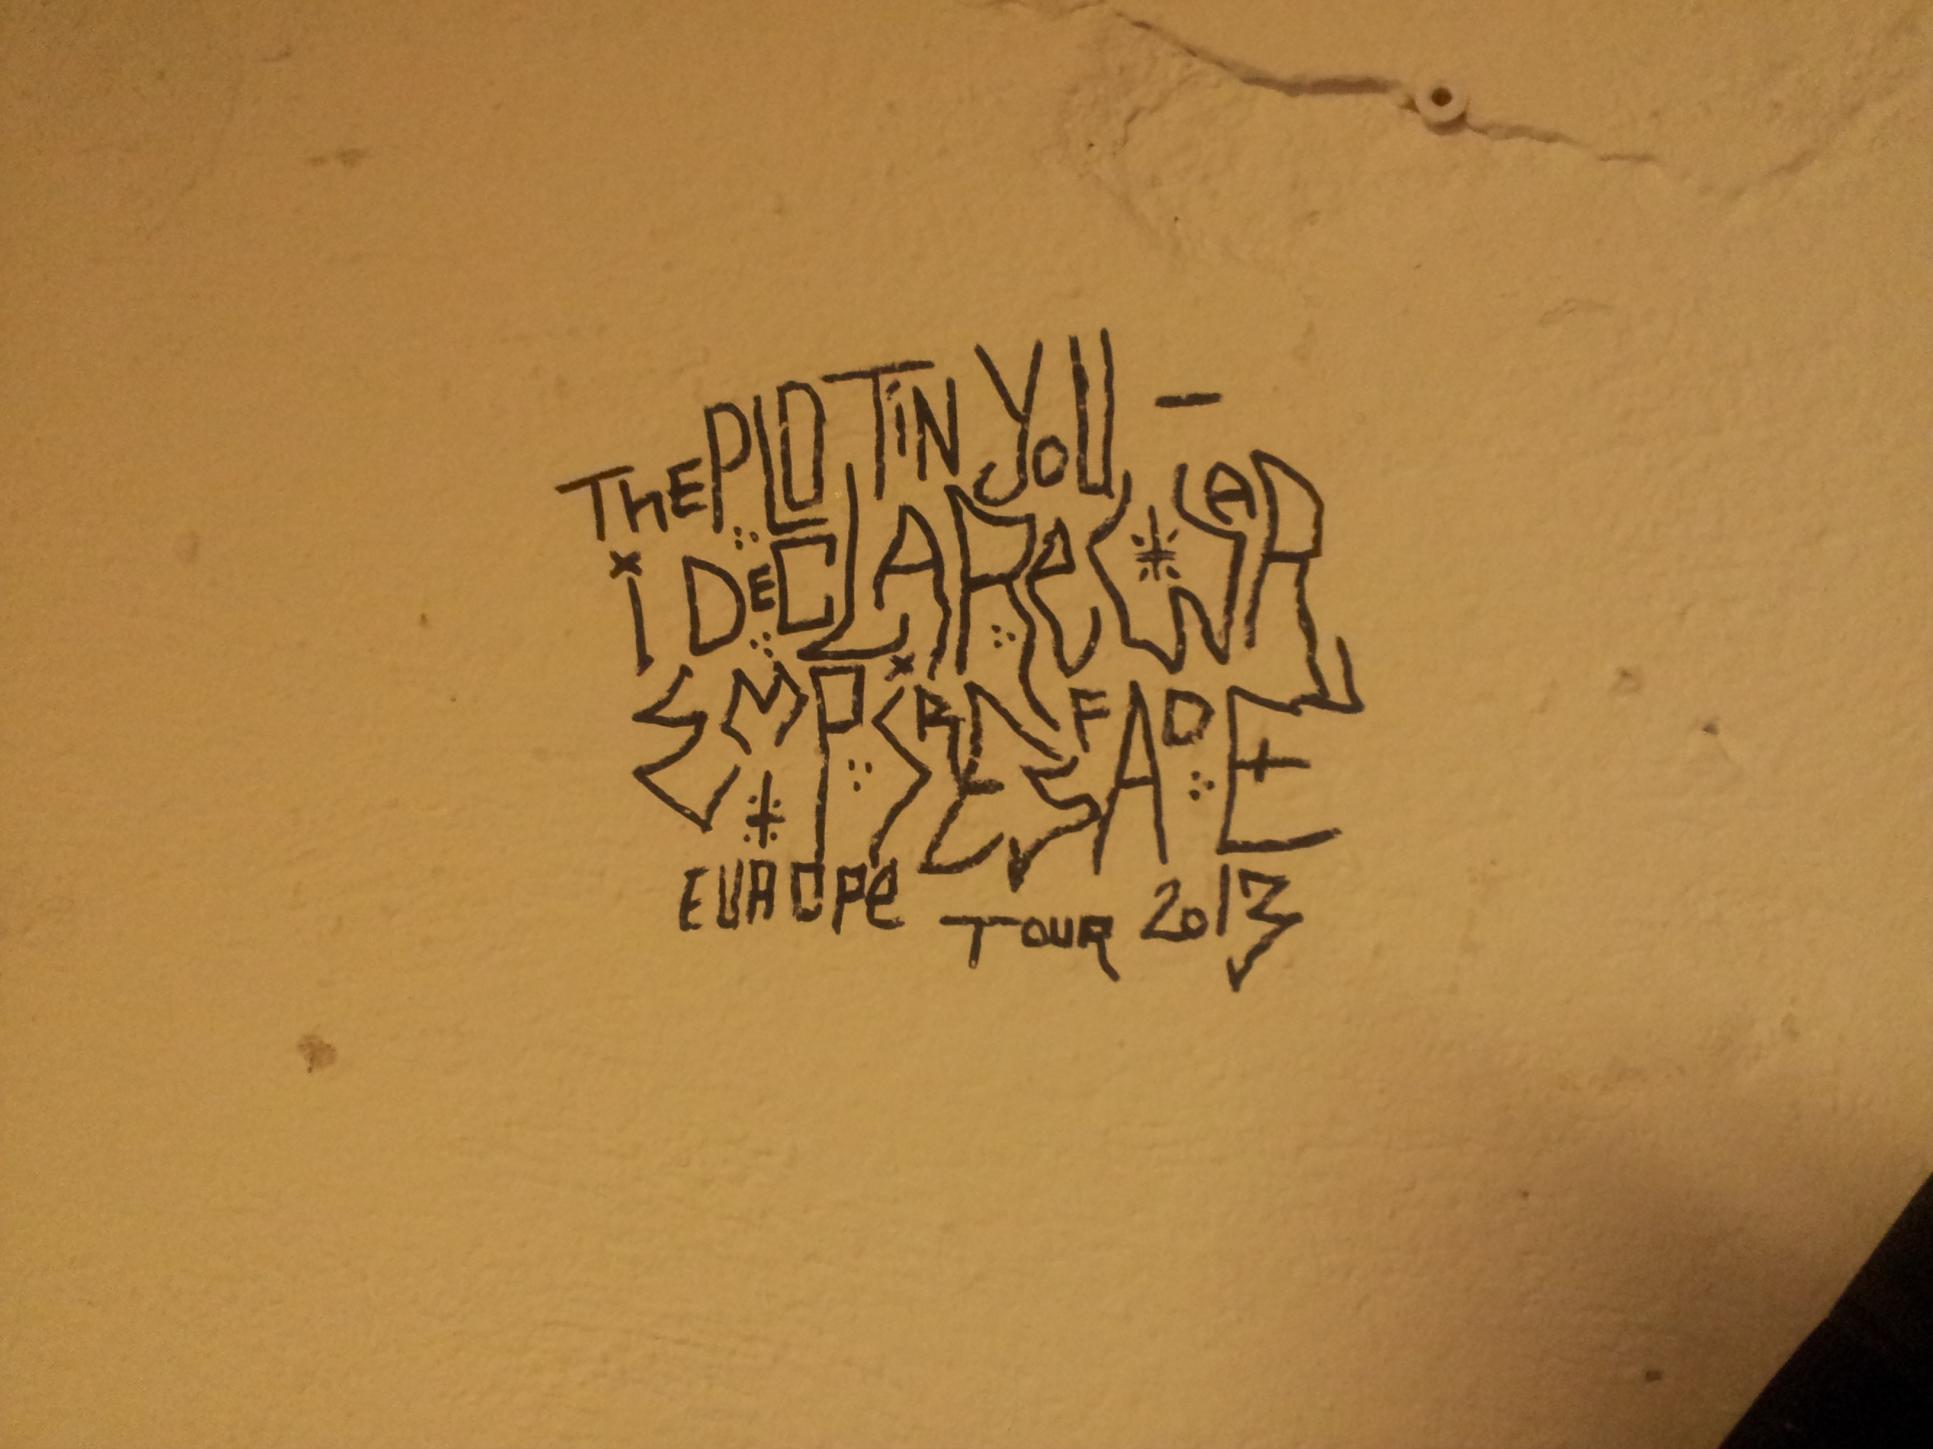 ThE PLOT iN YoU –
i DeCLARe WAR
EMPIRES FADE
EUROPe TOUR 2013